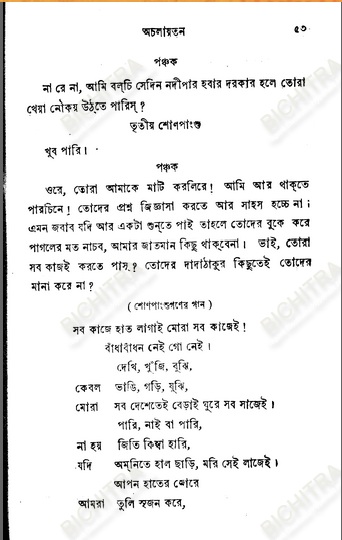 অচলায়তন ৫৩
পঞ্চক
না রে না, আমি বল্‌চি সেদিন নদীপার হবার দরকার হলে তোরা
খেয়া নৌকয় উঠ্‌তে পারিস্‌?
তৃতীয় শোণপাংশু
খুব পারি।
পঞ্চক
ওরে, তোরা আমাকে মাটি করলিরে! আমি আর থাক্‌তে
পারচিনে! তোদের প্রশ্ন জিজ্ঞাসা করতে আর সাহস হচ্চে না।
এমন জবাব যদি আর একটা শুন্‌তে পাই তাহলে তোদের বুকে করে
পাগলের মত নাচব, আমার জাতমান কিছু থাক্‌বেনা। ভাই, তোরা
সব কাজই করতে পাস্‌? তোদের দাদাঠাকুর কিছুতেই তোদের
মানা করে না?
(শোণপাংশুগণের গান)
সব কাজে হাত লাগাই মোরা সব কাজেই!
বাঁধাবাঁধন নেই গো নেই।
দেখি, খুঁজি, বুঝি,
কেবল ভাঙি, গড়ি, যুঝি,
মোরা সব দেশেতেই বেড়াই ঘুরে সব সাজেই।
পারি, নাই বা পারি,
না হয় জিতি কিম্বা হারি,
যদি অম্‌নিতে হাল ছাড়ি, মরি সেই লাজেই।
আপন হাতের জোরে
আমরা তুলি সৃজন করে,
BICHITRA
BICHITRA
BICHITRA
BICHITRA
BICHITRA
BICHITRA